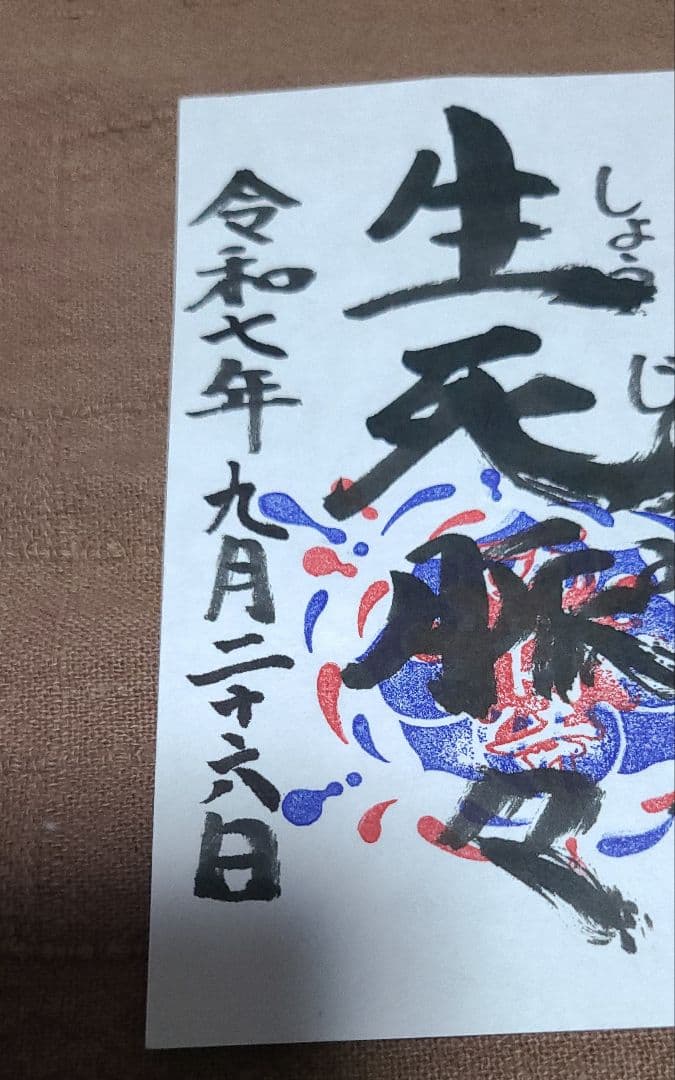 しょうじ
生死脈々
令和七年九月二十六日